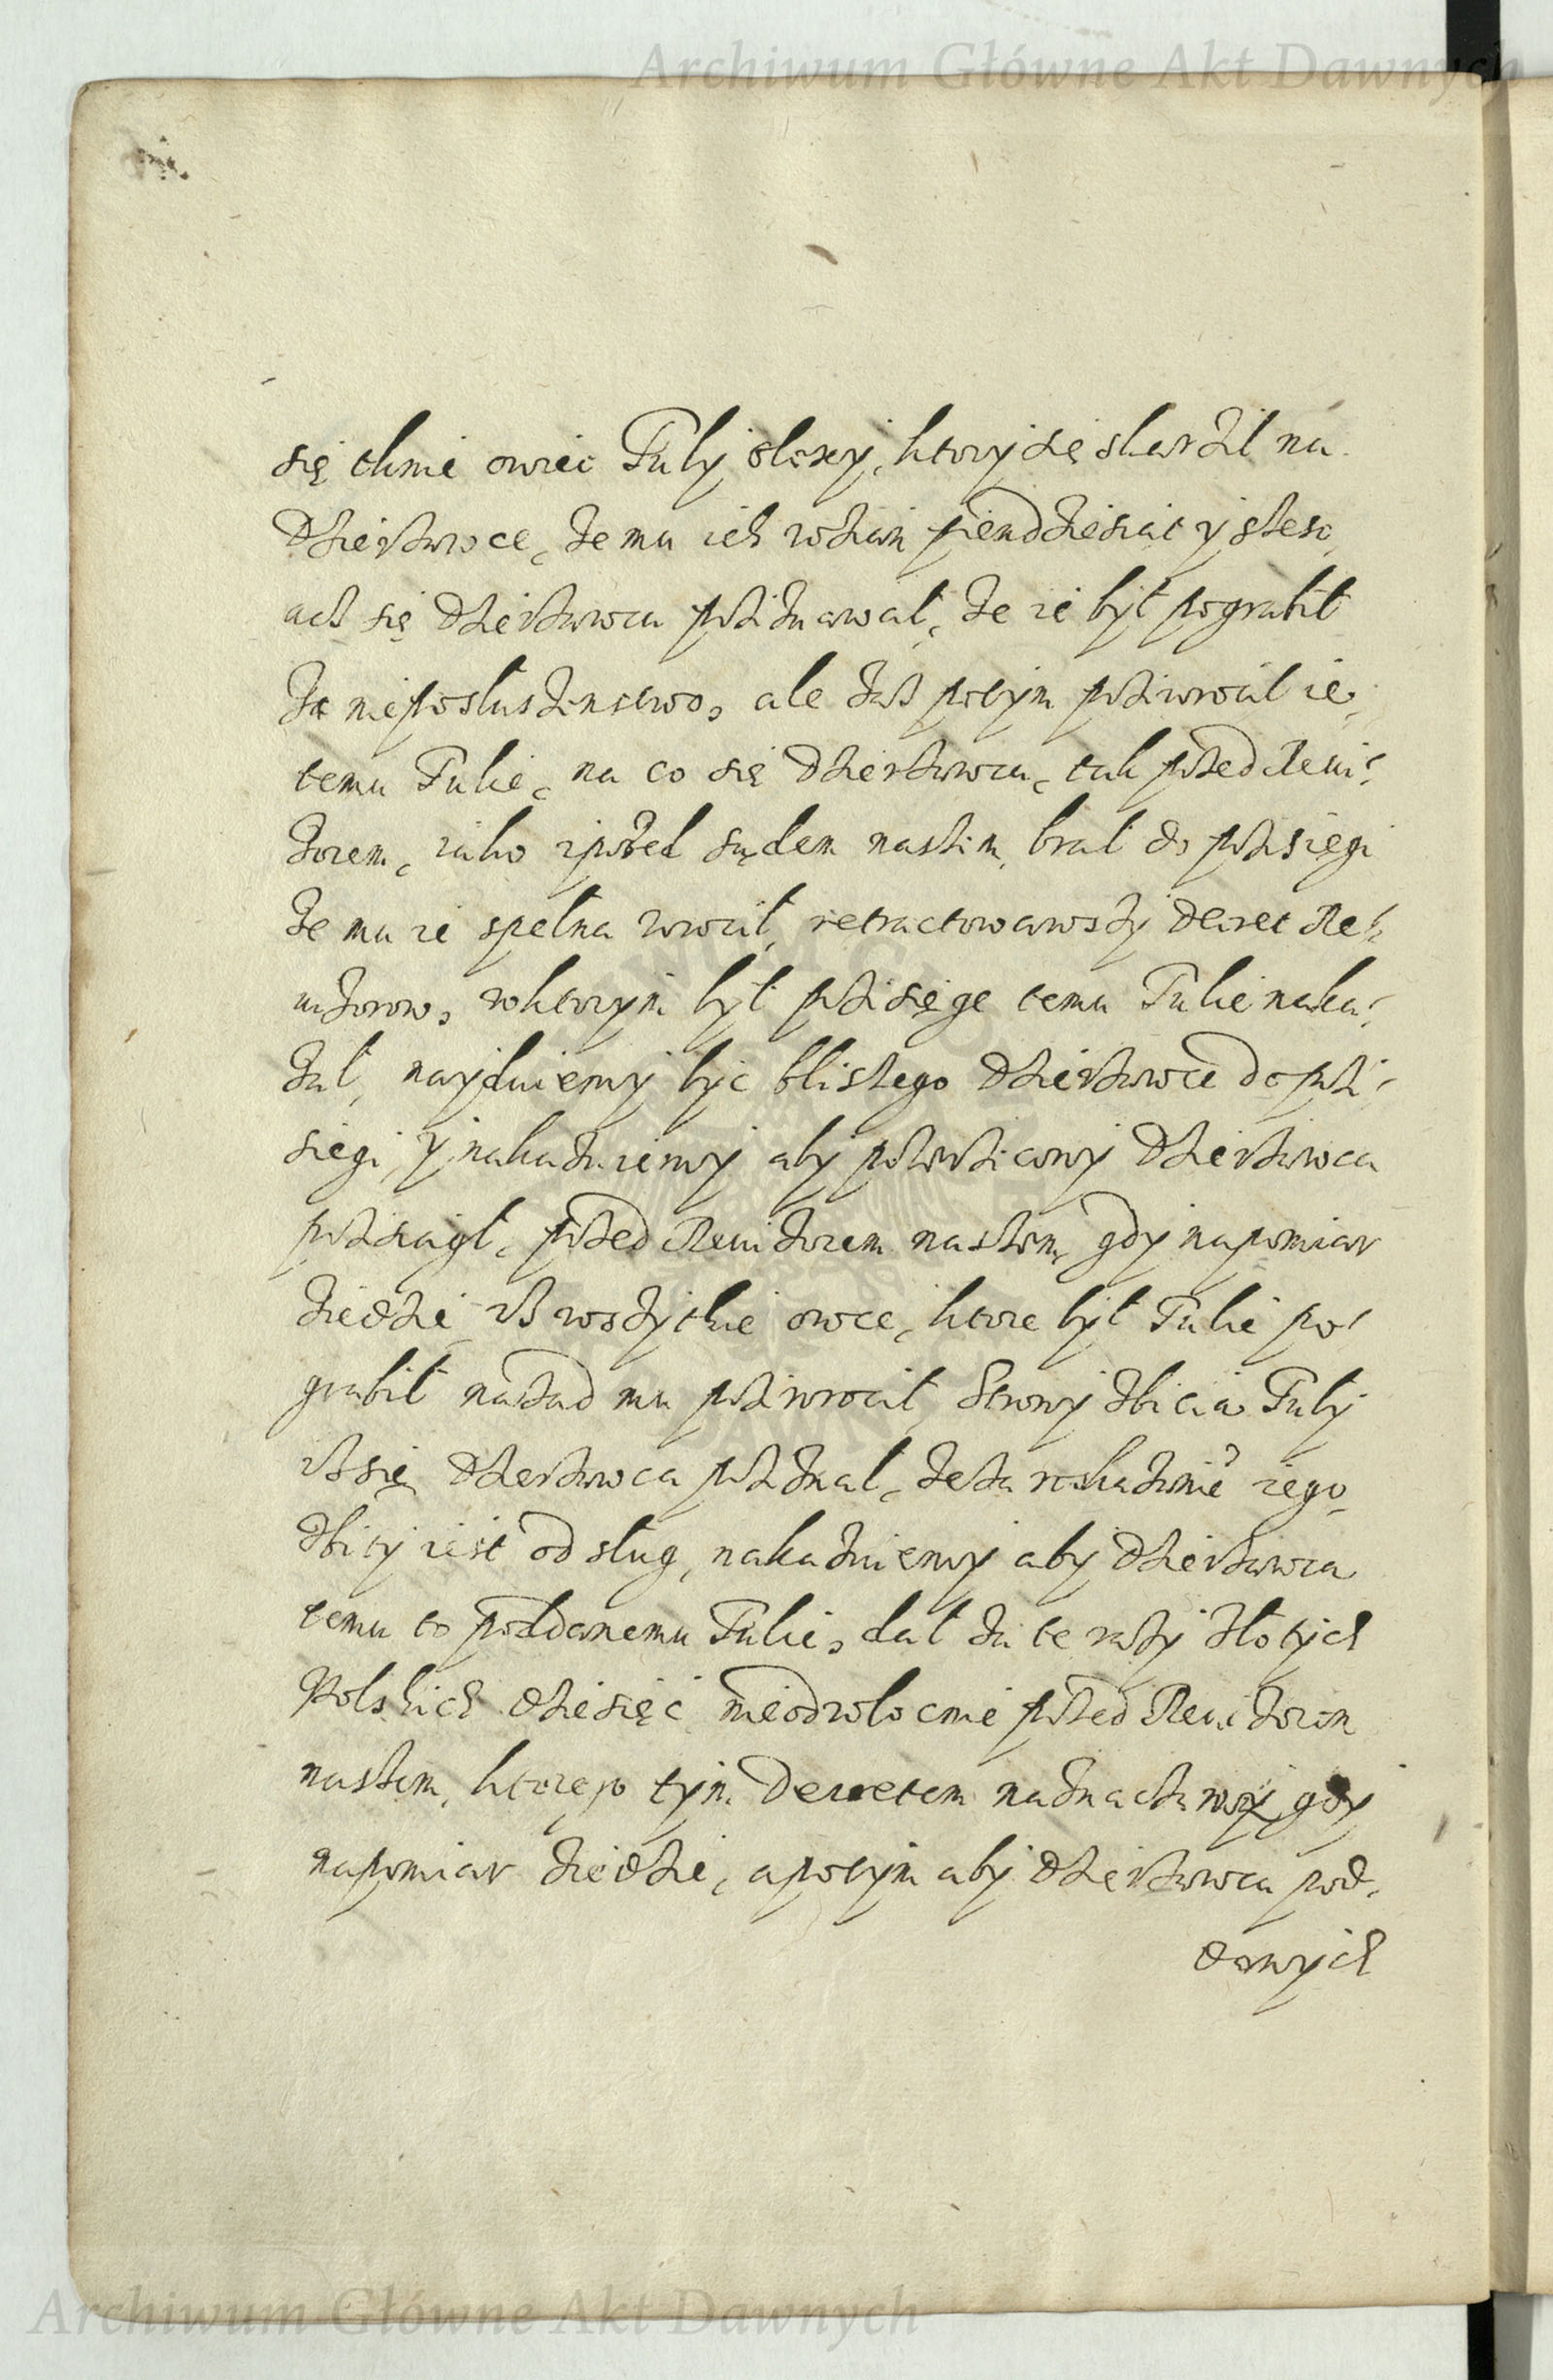 Archiwum Główne Akt Dawnych
się tknie owiec Fuly olexy, ktory się skarżil na
Dzierżawce, że mu ich wziąn piendziesiąt y sześć
acz się Dzierżawca przyznawał, że ie był pograbił
za nieposłuszenstwo, ale zaś potym przywrocił ie
temu Fulie, na co się Dzierżawca, tak przed Rewi-
zorem, iako y przed sądem naszim, brał do przisięgi
że mu ie spełna wrocił, retractowawszy Decret Re-
wizorow, w ktorym był przisięge temu Fulie naka-
zał, nayduiemy być bliszego Dzierżawce do przi-
sięgi, y nakazuiemy aby pomieniony Dzierżawca
przisiągł, przed Rewizorem naszem, gdy na pomiar
ziedzie, Jż wszytkie owce, ktore był Fulie po-
grabił nazad mu przywrocił, Strony zbicia Fuly
iż się Dzierżawca przyznał, że za roskazanie iego
zbity iest od sług, nakazuiemy aby Dzierżawca
temu to poddanemu Fulie, dał za te razy złotych
Polskich dziesięć nieodwłocnie przed Rewizorem
naszem, ktorego tym Decretem naznaczamy, gdy
na pomiar ziedzie, a potym aby Dzierżawca pod-
danych
Archiwum Główne Akt Dawnych